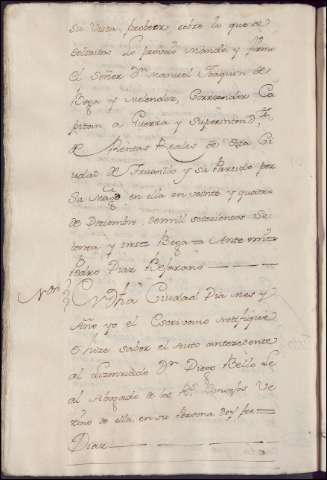 su Vista probeer sobre lo que se
solicita. Lo probeyó mandó y firmó
el Señor Dn Manuel Joaquin de
Vega y Melendez, Correxidor Ca
pitan a Guerra y Superintendte
de Rentas Reales de esta Ciu
dad de Truxillo y su Partido por
Su Magd en ella en veinte y quatro
de Diciembre de mil setecientos Se
tenta y siete Vega Ante mi
Pedro Diaz Bejarano
Noton En dha Ciudad Dia mes y
Año yo el Escrivano notifiqué
e hize saber el Auto antecedente
al Licenciado Dn Diego Bello Le
al Abogado de los Rs Consejos Ve
zino de ella en su Persona doy fee
Diaz